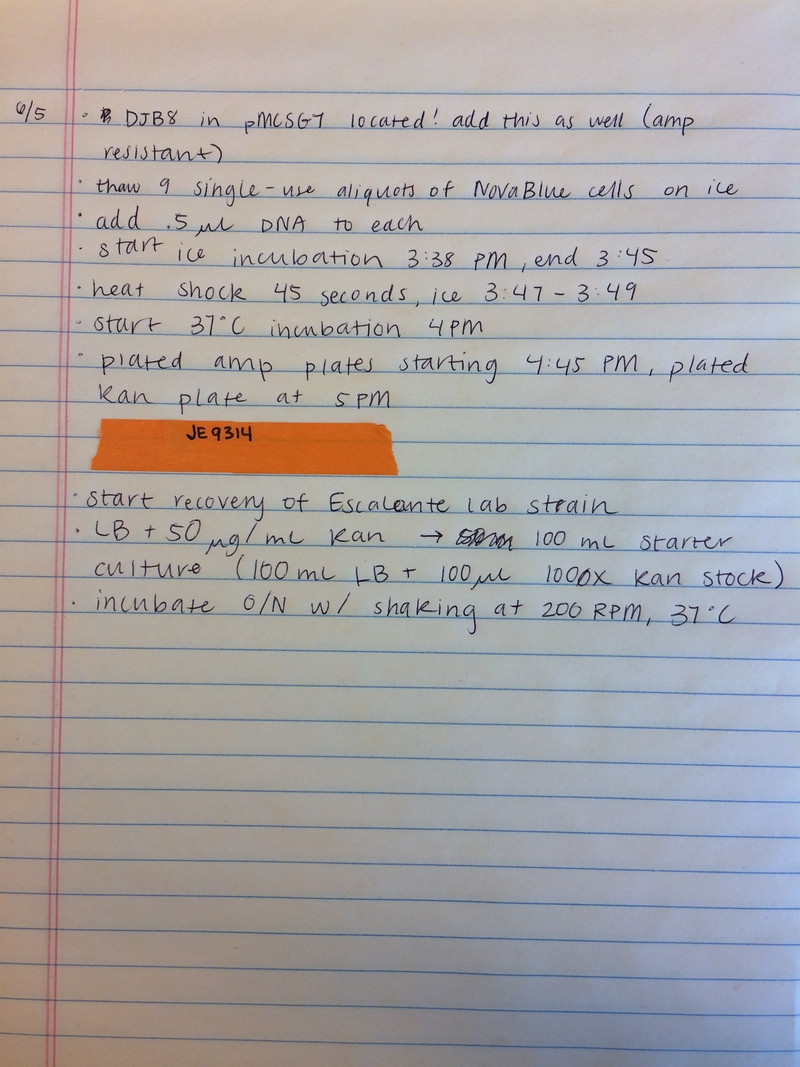 6/5 · DJB8 in pMCSG7 located! add this as well (amp
resistant)
· thaw 9 single-use aliquots of NovaBlue cells on ice
· add .5 µl DNA to each
· start ice incubation 3:38 PM, end 3:45
· heat shock 45 seconds, ice 3:47 - 3:49
· start 37°C incubation 4PM
· plated amp plates starting 4:45 PM, plated
kan plate at 5 PM
JE9314
· start recovery of Escalante lab strain
· LB + 50 µg/mL kan → 100 mL starter
culture (100 mL LB + 100 µl 1000X kan stock)
· incubate O/N w/ shaking at 200 RPM, 37°C